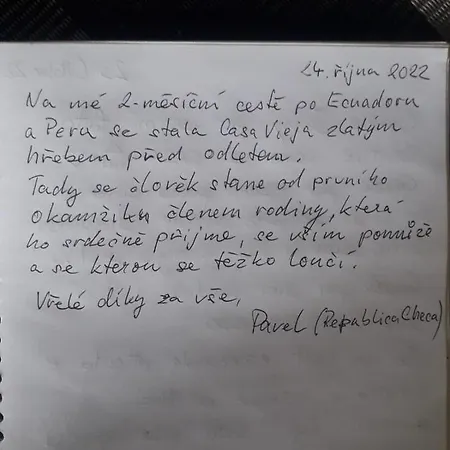 24. října 2022
Na mé 2-měsíční cestě po Ecuadoru
a Peru se stala Casa Vieja zlatým
hřebem před odletem.
Tady se člověk stane od prvního
okamžiku členem rodiny, která
ho srdečně přijme, se vším pomůže
a se kterou se těžko loučí.
Vřelé díky za vše,
Pavel (Republica Checa)